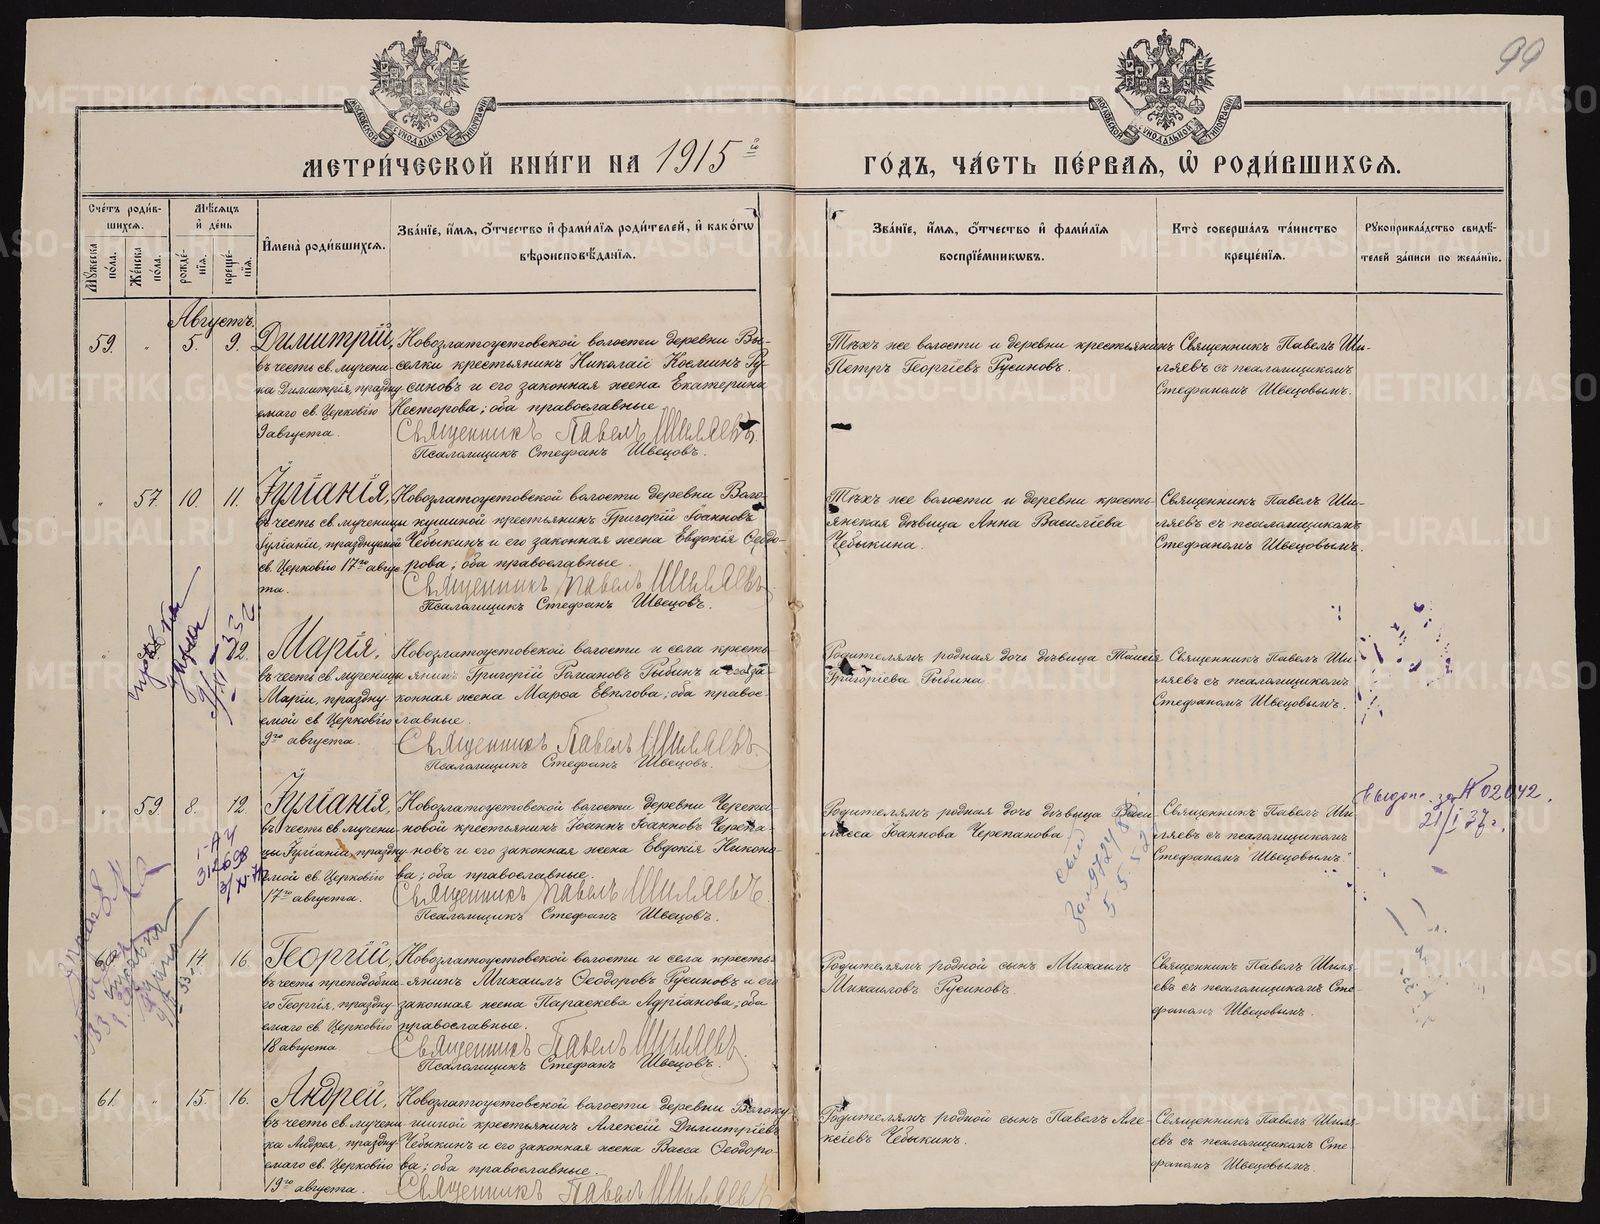 99
МОСКОВСКОЙ СѴНОДАЛЬНОЙ ТИПОГРАФІИ
МОСКОВСКОЙ СѴНОДАЛЬНОЙ ТИПОГРАФІИ
МЕТРИ́ЧЕСКОЙ КНИ́ГИ НА 1915й
ГО́ДЪ, ЧА́СТЬ ПЕ́РВАЯ, Ѡ҆ РОДИ́ВШИХСЯ.
Сче́тъ роди́в-
шихся.
Мꙋ́жеска по́ла.
Же́нска по́ла.
Мѣ́сяцъ
и҆ де́нь
рожде́-
нїя.
креще́-
нїя.
И҆мена̀ роди́вшихся.
Зва́нїе, и҆́мя, ѻ҆́тчество и҆ фами́лїя роди́телей, и҆ како́гѡ
вѣроисповѣ́данїя.
Зва́нїе, и҆́мя, ѻ҆́тчество и҆ фами́лїя
воспрїе́мникѡвъ.
Кто̀ соверша́лъ та́инство
креще́нїя.
Рꙋкоприкла́дство свидѣ́-
телей за́писи по жела́нїю.
Августъ.
59. " 5. 9.
Димитрій,
въ честь св. мучени-
ка Димитрія, праздну-
емаго св. Церковію
9 августа.
Новозлатоустовской волости деревни Вы-
селки крестьянинъ Николай Космичъ Ру-
синовъ и его законная жена Екатерина
Несторова; оба православные.
Священникъ Павелъ Шиляевъ.
Псаломщикъ Стефанъ Швецовъ.
Тѣхъ же волости и деревни крестьянинъ
Петръ Георгіевъ Русиновъ.
Священникъ Павелъ Ши-
ляевъ съ псаломщикомъ
Стефаномъ Швецовымъ.
" 57. 10. 11.
Іуліанія,
въ честь св. мученицы
Іуліаніи, празднуемой
св. Церковію 17го авгус-
та.
Новозлатоустовской волости деревни Воло-
кушиной крестьянинъ Григорій Іоанновъ
Чебыкинъ и его законная жена Евдокія Ѳеодо-
рова; оба православные.
Священникъ Павелъ Шиляевъ
Псаломщикъ Стефанъ Швецовъ.
Тѣхъ же волости и деревни кресть-
янская дѣвица Анна Василіева
Чебыкина.
Священникъ Павелъ Ши-
ляевъ съ псаломщикомъ
Стефаномъ Швецовымъ.
12.
Марія,
въ честь св. мученицы
Маріи, праздну-
емой св. Церковію
9го августа.
Новозлатоустовской волости и села кресть-
янинъ Григорій Романовъ Рыбинъ и его за-
конная жена Марѳа Евплова; оба право-
славные.
Священникъ Павелъ Шиляевъ.
Псаломщикъ Стефанъ Швецовъ.
Родителямъ родная дочь дѣвица Таисія
Григоріева Рыбина.
Священникъ Павелъ Ши-
ляевъ съ псаломщикомъ
Стефаномъ Швецовымъ.
" 59. 8. 12.
Іуліанія,
въ честь св. мучени-
цы Іуліаніи, праздну-
емой св. Церковію
17го августа.
Новозлатоустовской волости деревни Черепа-
новой крестьянинъ Іоаннъ Іоанновъ Черепа-
новъ и его законная жена Евдокія Никоно-
ва; оба православные.
Священникъ Павелъ Шиляевъ.
Псаломщикъ Стефанъ Швецовъ.
Родителямъ родная дочь дѣвица Васи-
лисса Іоаннова Черепанова.
Священникъ Павелъ Ши-
ляевъ съ псаломщикомъ
Стефаномъ Швецовымъ.
21/I 37г.
14. 16.
Георгій,
въ честь преподобна-
го Георгія, праздну-
емаго св. Церковію
18 августа.
Новозлатоустовской волости и села кресть-
янинъ Михаилъ Ѳеодоровъ Русиновъ и его
законная жена Параскева Адріанова; оба
православные.
Священникъ Павелъ Шиляевъ.
Псаломщикъ Стефанъ Швецовъ.
Родителямъ родной сынъ Михаилъ
Михаиловъ Русиновъ.
Священникъ Павелъ Шиля-
евъ съ псаломщикомъ Сте-
фаномъ Швецовымъ.
61. " 15. 16.
Андрей,
въ честь св. мучени-
ка Андрея, праздну-
емаго св. Церковію
19го августа.
Новозлатоустовской волости деревни Волоку-
шиной крестьянинъ Алексій Димитріевъ
Чебыкинъ и его законная жена Васса Ѳеодоро-
ва; оба православные.
Священникъ Павелъ Шиляевъ
Родителямъ родной сынъ Павелъ Але-
ксіевъ Чебыкинъ.
Священникъ Павелъ Шиля-
евъ съ псаломщикомъ Сте-
фаномъ Швецовымъ.
METRIKI.GASO-URAL.RU